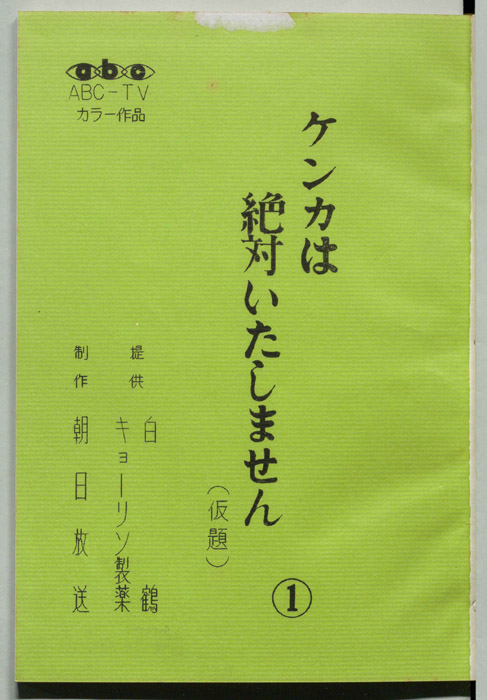 ケンカは
絶対いたしません
(仮題)
①
abc
ABC-TV
カラー作品
提供 白鶴
キョーリン製薬
制作 朝日放送